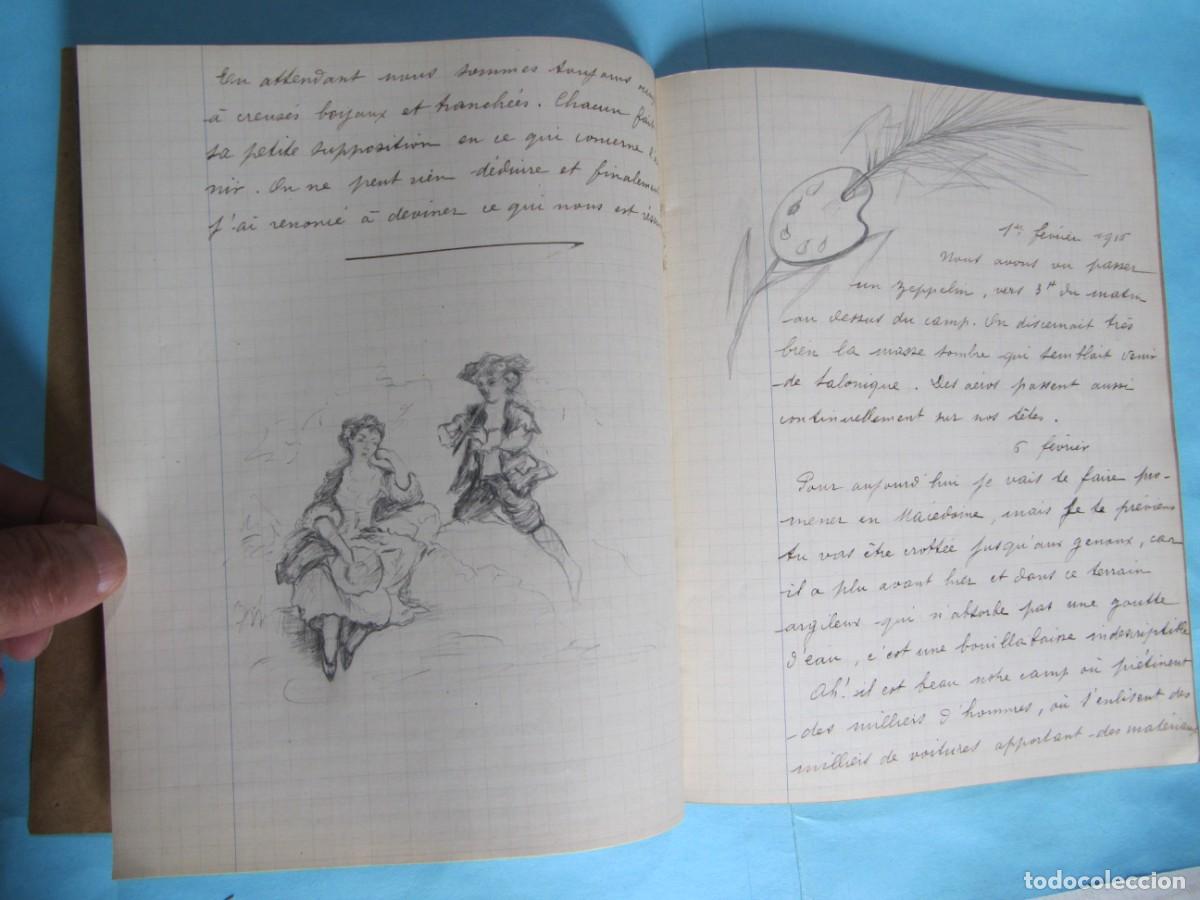 En attendant nous sommes toujours
à creusés boyaux et tranchées. Chacun fait
sa petite supposition en ce qui concerne l'
nir. On ne peut rien déduire et finalement
j'ai renoncé à deviner ce qui nous est rés
1er février 1916
Nous avons vu passer
un zeppelin, vers 3H du matin
au dessus du camp. On discernait très
bien la masse sombre qui semblait venir
de Salonique. Des aéros passent aussi
continuellement sur nos têtes.
6 février
Pour aujourd'hui je vais te faire pro-
mener en Macédoine, mais je te préviens
tu vas être crottée jusqu'aux genoux, car
il a plu avant hier et dans ce terrain
argileux qui n'absorbe pas une goutte
d'eau, c'est une bouillabaisse indescriptible
Ah! il est beau notre camp où piétinent
des milliers d'hommes, où s'enlisent des
milliers de voitures apportant des matériaux
todocoleccion